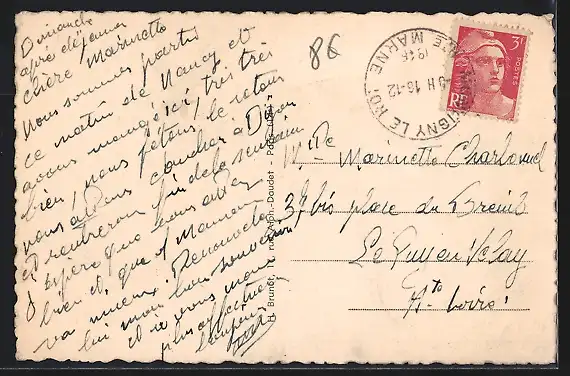 Dimanche
après déjeuner
86
chère Marinette
Nous sommes partis
ce matin de Nancy et
avons mangé ici, très très
bien, nous fêtons le retour
nous allons coucher à Dijon
et rentrerons fin de la semaine
J'espère que vous allez
bien et que ta Maman
va mieux. Renouvelle
lui mon bon souvenir
et je vous
plus affectueux
3F
POSTES
RF
1946
16-12
IGNY LE ROI
TE MARNE
H. Brunot, rue Alph.-Daudet - Paris
Mlle Marinette Charbonnel
bis place du Breuil
Le Puy en Velay
Hte Loire